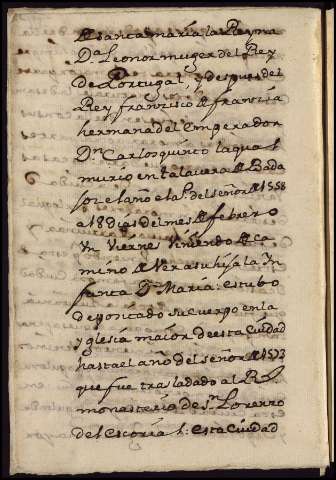 de santa maria la Reyna
Da. Leonor muger del Rey
de Portugal, y despues del
Rey francisco de francia
hermana del emperador
Dn Carlos quinto la qual
murio en talavera de Bada
Jos el año del Sr. del señor de 1558
a 18 dias del mes de febrero
Un Vierne Viniendo de ca
mino de Ver a su hija la Yn
fanta Da. Maria: estubo
Depositado su cuerpo en la
yglesia maior de esta Ciudad
hasta el año del señor de 1573
que fue trasladado al Rl.
monasterio de Sn. Lorenzo
del Escorial: esta Ciudad